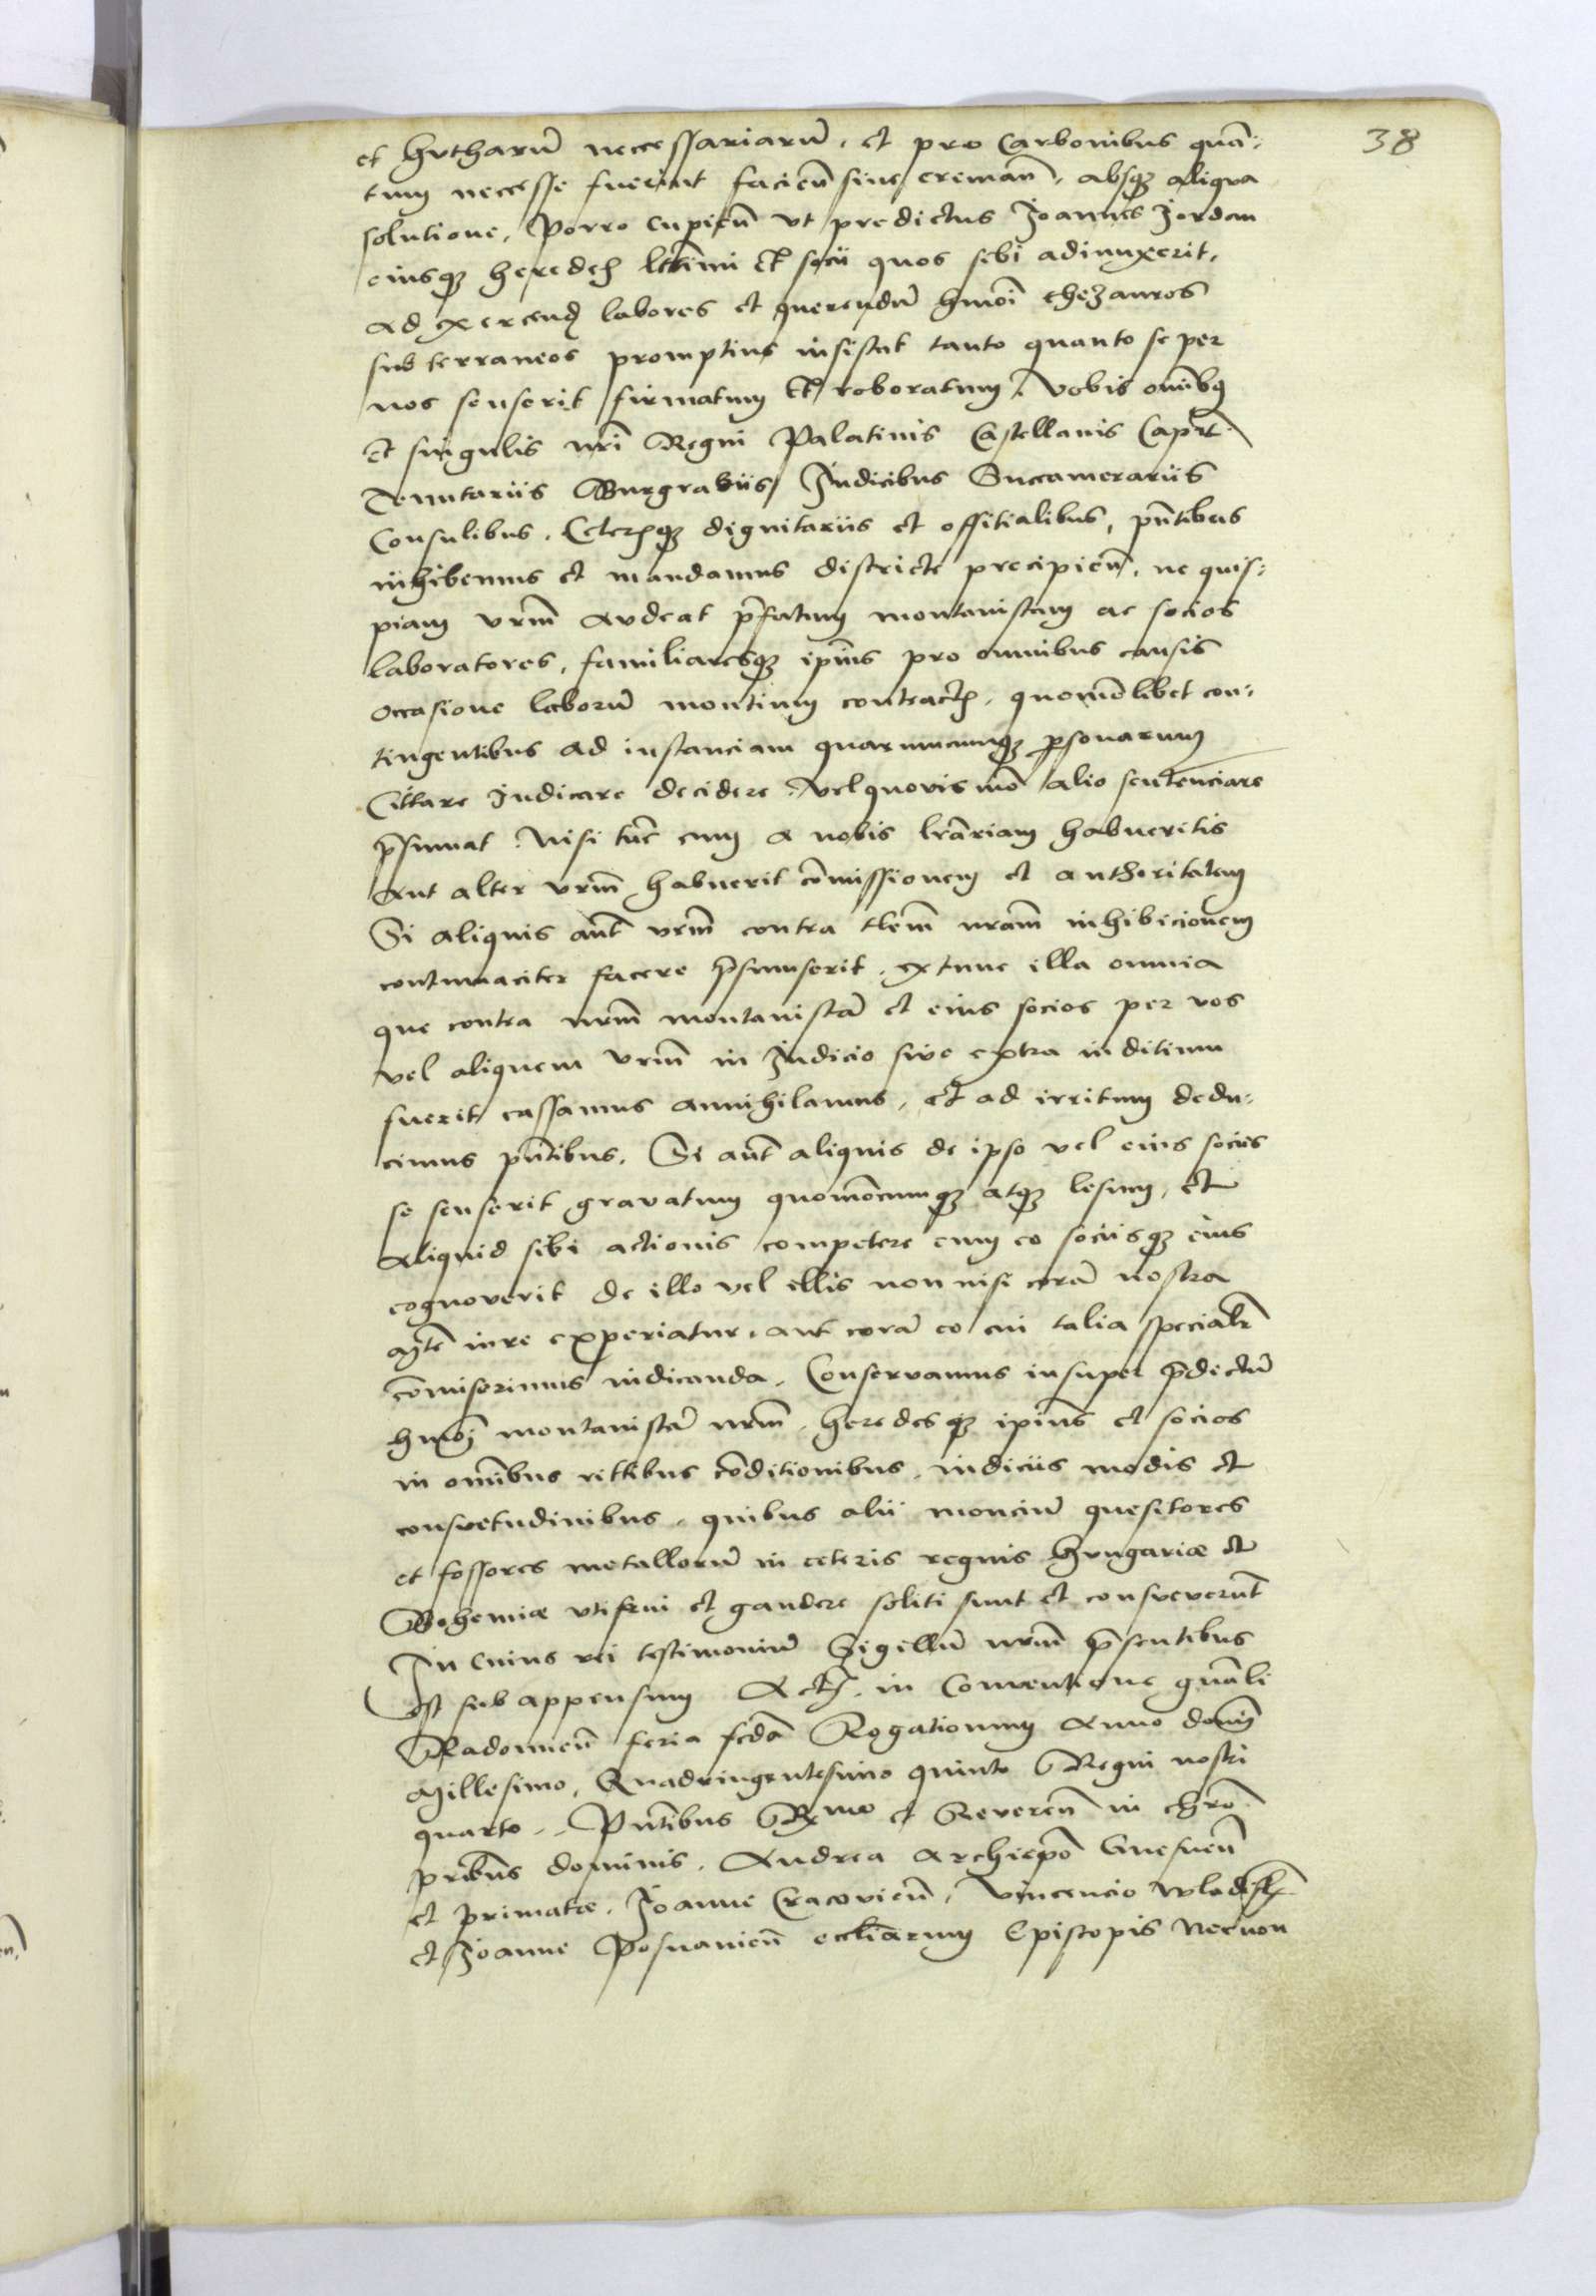 38
et Hvtharū necessariarū, et pro Carbonibus quā:
tum necesse fuerint facieñ siue cremañ, absq3 aliqva
solutione, Porro cupieñ vt predictus Joannes Jordan
eiusq3 heredes lttimi et socii quos sibi adiunxerit,
ad exercend labores et querendū hmōi thezauros
subterraneos promptius insistat tanto quanto se per
nos senserit firmatum et roboratum, Vobis omībus
et singulis nrī Regni Palatinis Castellanis Capit
Tenutariis Burgrabiis Judicibus Succamerariis
Consulibus, Ceterisq3 dignitariis et offitialibus, pñtibus
inhibemus et mandamus districte precipieñ, ne quis:
piam vrm̄ avdeat p̄fatum montanistam ac socios
laboratores, familiaresq3 ipīus pro omnibus causis
occasione laborū montium contractis, quomōlibet con:
tingentibus ad instanciam quarumcumq3 personarum
Cittare iudicare decidere vel quovis mō alio sentenciare
p̄sumat, Nisi tūc cum a nobis lrāriam habueritis
Aut alter vrm̄ habuerit cōmissionem et authoritatem
Si aliquis aūt vrm̄ contra tlem̄ nram̄ inhibicionem
contumaciter facere p̄sumserit, extunc illa omnia
que contra nrm̄ montanistā et eius socios per vos
vel aliquem vrm̄ in Judicio sive extra inditium
fuerit cassamus annihilamus, et ad irritum dedu:
cimus pñtibus, Si aūt aliquis de ipso vel eius sociis
se senserit gravatum quomōcumq3 atq3 lesum, et
Aliquid sibi actionis competere cum eo sociisq3 eius
cognoverit de illo vel illis non nisi corā nostra
mte iure experiatur, aut corā eo cui talia specialr
cōmiserimus iudicanda, Conservamus insuper p̄dictū
hmōi montanistā nrm̄, heredesq3 ipīus et socios
in omībus rittibus cōditionibus, iudiciis modis et
consvetudinibus, quibus alii monciū quesitores
et fossores metallorū in ceteris regnis Hvngariæ et
Bohemiæ vti frui et gaudere soliti sunt et consveverūt
In Cuius rei testimoniū Sigellū nrm̄ p̄sentibus
Est subappensum Act. in Conventione gnāli
Radomieñ feria scdā Rogationum Anno domī
Millesimo, Quadringentesimo quinto Regni nostri
quarto, Pñtibus Rmo et Revereñ in chrō
pribus dominis, Andrea Archiepō Gnesneñ
et primate, Joanne Cracovieñ, Vincencio Wladisl
et Joanne Posnanieñ eccliarum Episcopis Necnon